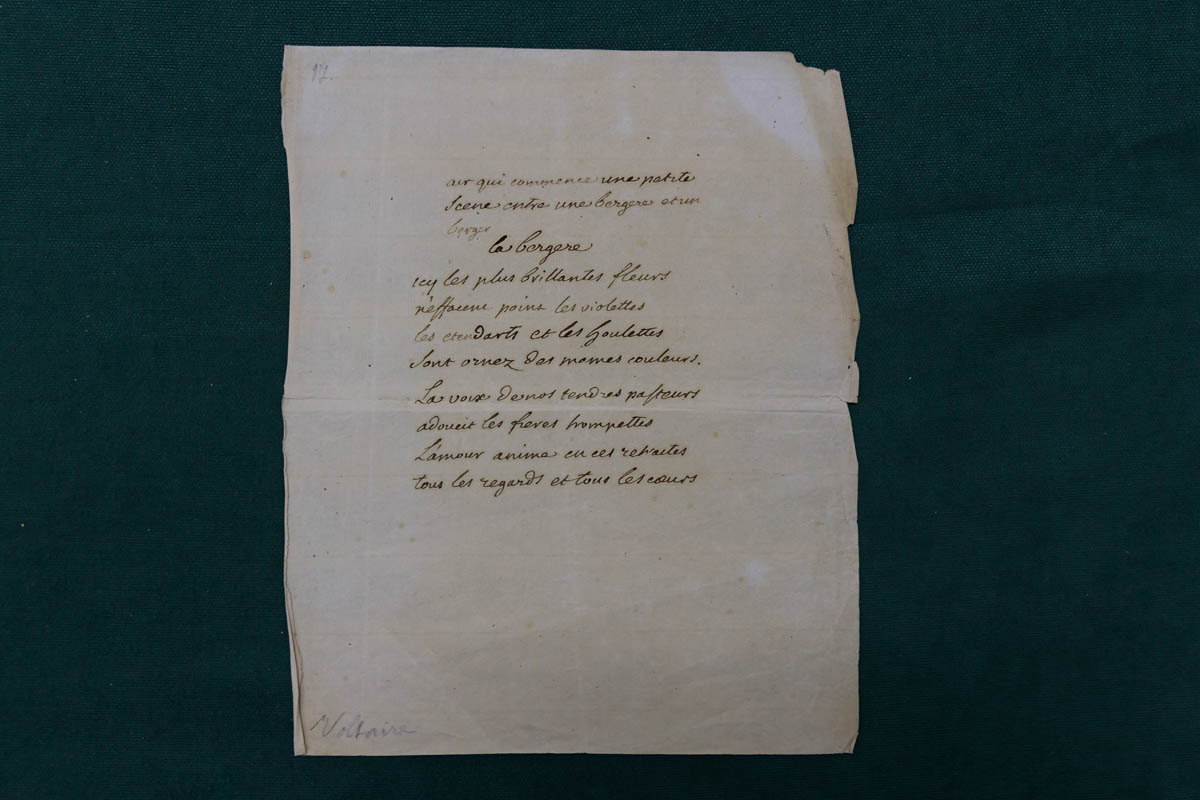 17.
air qui commence une petite
Scene entre une bergere et un
berger
la bergere
icy les plus brillantes fleurs
n'effacent point les violettes
les etendarts et les houlettes
Sont ornez des memes couleurs.
La voix de nos tendres pasteurs
adoucit les fieres trompettes
L'amour anime en ces retraites
tous les regards et tous les cœurs
Voltaire